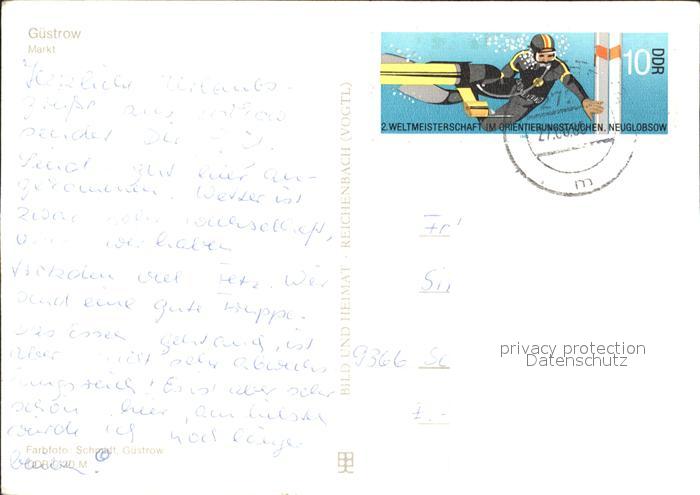 Güstrow
Markt
Herzliche Urlaubs-
grüße aus
sendet Dir
Sind gut hier an-
gekommen. Wetter ist
zwar sehr wechselhaft,
wir haben
trotzdem viel Fetz. Wir
sind eine gute Truppe.
Das Essen ist
aber nicht sehr abwechs
lungsreich! Es ist aber sehr
schön hier, am liebsten
würde ich noch länger
bleiben.
Farbfoto: Schmidt, Güstrow
BILD UND HEIMAT · REICHENBACH (VOGTL)
10 DDR
2. WELTMEISTERSCHAFT IM ORIENTIERUNGSTAUCHEN, NEUGLOBSOW
m
Fr
9366
privacy protection
Datenschutz